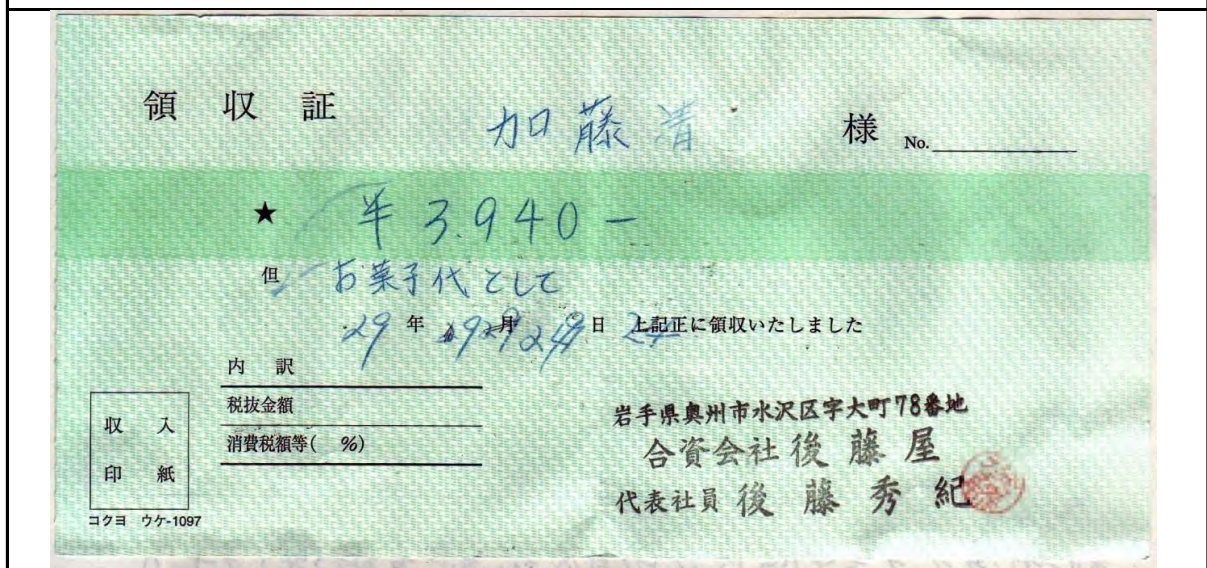 領 収 証 加藤清 様 No.
★ ¥3.940-
但 お菓子代として
29 年 月 日 上記正に領収いたしました
内 訳
税抜金額
消費税額等( %)
収 入
印 紙
コクヨ ウケ-1097
岩手県奥州市水沢区字大町78番地
合資会社 後藤屋
代表社員 後藤秀紀